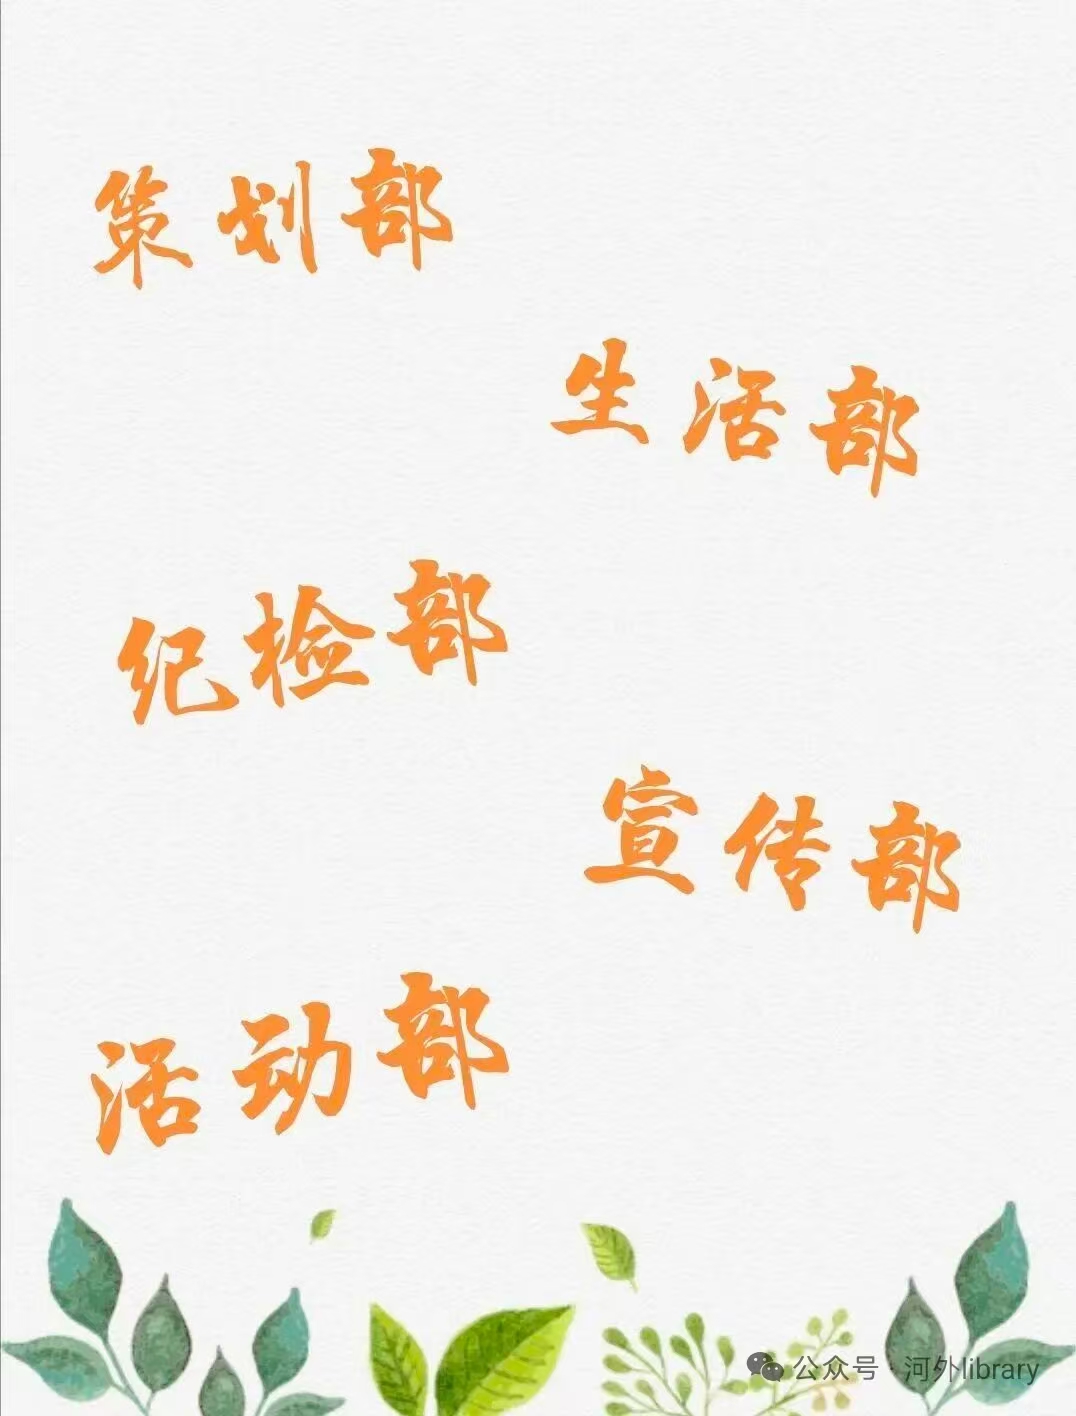 策划部
生活部
纪检部
宣传部
活动部
公众号 · 河外library